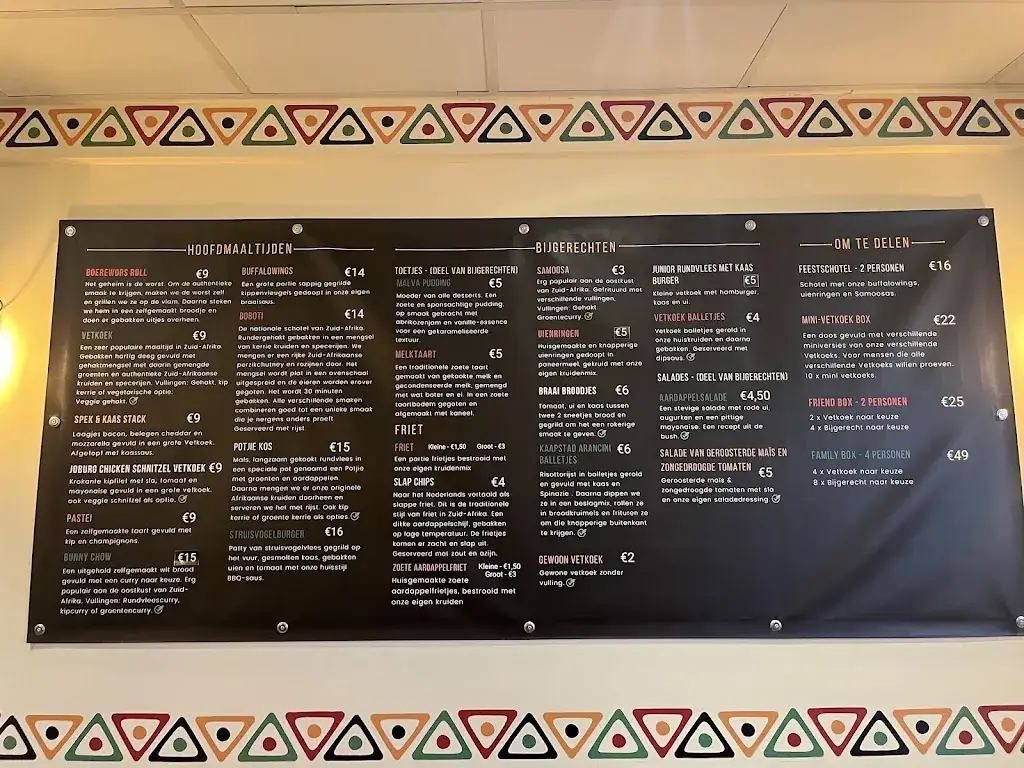 HOOFDMAALTIJDEN
BOEREWORS ROLL €9
Het geheim is de worst. Om de authentieke
smaak te krijgen, maken we de worst zelf
en grillen we ze op de vlam. Daarna steken
we hem in een zelfgemaakt broodje en
doen er gebakken uitjes overheen.
VETKOEK €9
Een zeer populaire maaltijd in Zuid-Afrika.
Gebakken hartig deeg gevuld met
gehaktmengsel met daarin gemengde
groenten en authentieke Zuid-Afrikaanse
kruiden en specerijen. Vullingen: Gehakt, kip
kerrie of vegetarische optie:
Veggie gehakt.
SPEK & KAAS STACK €9
Laagjes bacon, belegen cheddar en
mozzarella gevuld in een grote Vetkoek.
Afgetopt met kaassaus.
JOBURG CHICKEN SCHNITZEL VETKOEK €9
Krokante kipfilet met sla, tomaat en
mayonaise gevuld in een grote vetkoek.
ook veggie schnitzel als optie.
PASTEI €9
Een zelfgemaakte taart gevuld met
kip en champignons.
BUNNY CHOW €15
Een uitgehold zelfgemaakt wit brood
gevuld met een curry naar keuze. Erg
populair aan de oostkust van Zuid-
Afrika. Vullingen: Rundvleescurry,
kipcurry of groentencurry.
BUFFALOWINGS €14
Een grote portie sappig gegrilde
kippenvleugels gedoopt in onze eigen
braaisaus.
BOBOTI €14
De nationale schotel van Zuid-Afrika.
Rundergehakt gebakken in een mengsel
van kerrie kruiden en specerijen. We
mengen er een rijke Zuid-Afrikaanse
perzikchutney en rozijnen door. Het
mengsel wordt plat in een ovenschaal
uitgespreid en de eieren worden erover
gegoten. Het wordt 30 minuten
gebakken. Alle verschillende smaken
combineren goed tot een unieke smaak
die je nergens anders proeft
Geserveerd met rijst
POTJIE KOS €15
Mals, langzaam gekookt rundvlees in
een speciale pot genaamd een Potjie
met groenten en aardappelen.
Daarna mengen we er onze originele
Afrikaanse kruiden doorheen en
serveren we het met rijst. Ook kip
kerrie of groente kerrie als opties.
STRUISVOGELBURGER €16
Patty van struisvogelvlees gegrild op
het vuur, gesmolten kaas, gebakken
uien en tomaat met onze huisstijl
BBQ-saus.
BIJGERECHTEN
TOETJES - (DEEL VAN BIJGERECHTEN)
MALVA PUDDING €5
Moeder van alle desserts. Een
zoete en sponsachtige pudding,
op smaak gebracht met
abrikozenjam en vanille-essence
voor een gekarameliseerde
textuur.
MELKTAART €5
Een traditionele zoete taart
gemaakt van gekookte melk en
gecondenseerde melk, gemengd
met wat boter en ei. In een zoete
taartbodem gegoten en
afgemaakt met kaneel.
FRIET
FRIET Kleine - €1,50 Groot - €3
Een portie frietjes bestrooid met
onze eigen kruidenmix
SLAP CHIPS €4
Naar het Nederlands vertaald als
slappe friet. Dit is de traditionele
stijl van friet in Zuid-Afrika. Een
dikke aardappelschijf, gebakken
op lage temperatuur. De frietjes
komen er zacht en slap uit.
Geserveerd met zout en azijn.
ZOETE AARDAPPELFRIET Kleine - €1,50
Groot - €3
Huisgemaakte zoete
aardappelfrietjes, bestrooid met
onze eigen kruiden
SAMOOSA €3
Erg populair aan de oostkust
van Zuid-Afrika. Gefrituurd met
verschillende vullingen,
Vullingen: Gehakt
Groentecurry.
UIENRINGEN €5
Huisgemaakte en knapperige
uienringen gedoopt in
paneermeel, gekruid met onze
eigen kruidenmix.
BRAAI BROODJES €6
Tomaat, ui en kaas tussen
twee 2 sneetjes brood en
gegrild om het een rokerige
smaak te geven.
KAAPSTAD ARANCINI €6
BALLETJES
Risottorijst in balletjes gerold
en gevuld met kaas en
Spinazie . Daarna dippen we
ze in een beslagmix, rollen ze
in broodkruimels en frituren ze
om die knapperige buitenkant
te krijgen.
GEWOON VETKOEK €2
Gewone vetkoek zonder
vulling.
JUNIOR RUNDVLEES MET KAAS
BURGER €5
Kleine vetkoek met hamburger,
kaas en ui.
VETKOEK BALLETJES €4
Vetkoek balletjes gerold in
onze huiskruiden en daarna
gebakken. Geserveerd met
dipsaus.
SALADES - (DEEL VAN BIJGERECHTEN)
AARDAPPELSALADE €4,50
Een stevige salade met rode ui,
augurken en een pittige
mayonaise. Een recept uit de
bush.
SALADE VAN GEROOSTERDE MAÏS EN
ZONGEDROOGDE TOMATEN €5
Geroosterde maïs &
zongedroogde tomaten met sla
en onze eigen saladedressing.
OM TE DELEN
FEESTSCHOTEL - 2 PERSONEN €16
Schotel met onze buffalowings,
uienringen en Samoosas.
MINI-VETKOEK BOX €22
Een doos gevuld met verschillende
miniversies van onze verschillende
Vetkoeks. Voor mensen die alle
verschillende Vetkoeks willen proeven.
10 x mini vetkoeks.
FRIEND BOX - 2 PERSONEN €25
2 x Vetkoek naar keuze
4 x Bijgerecht naar keuze
FAMILY BOX - 4 PERSONEN €49
4 x Vetkoek naar keuze
8 x Bijgerecht naar keuze